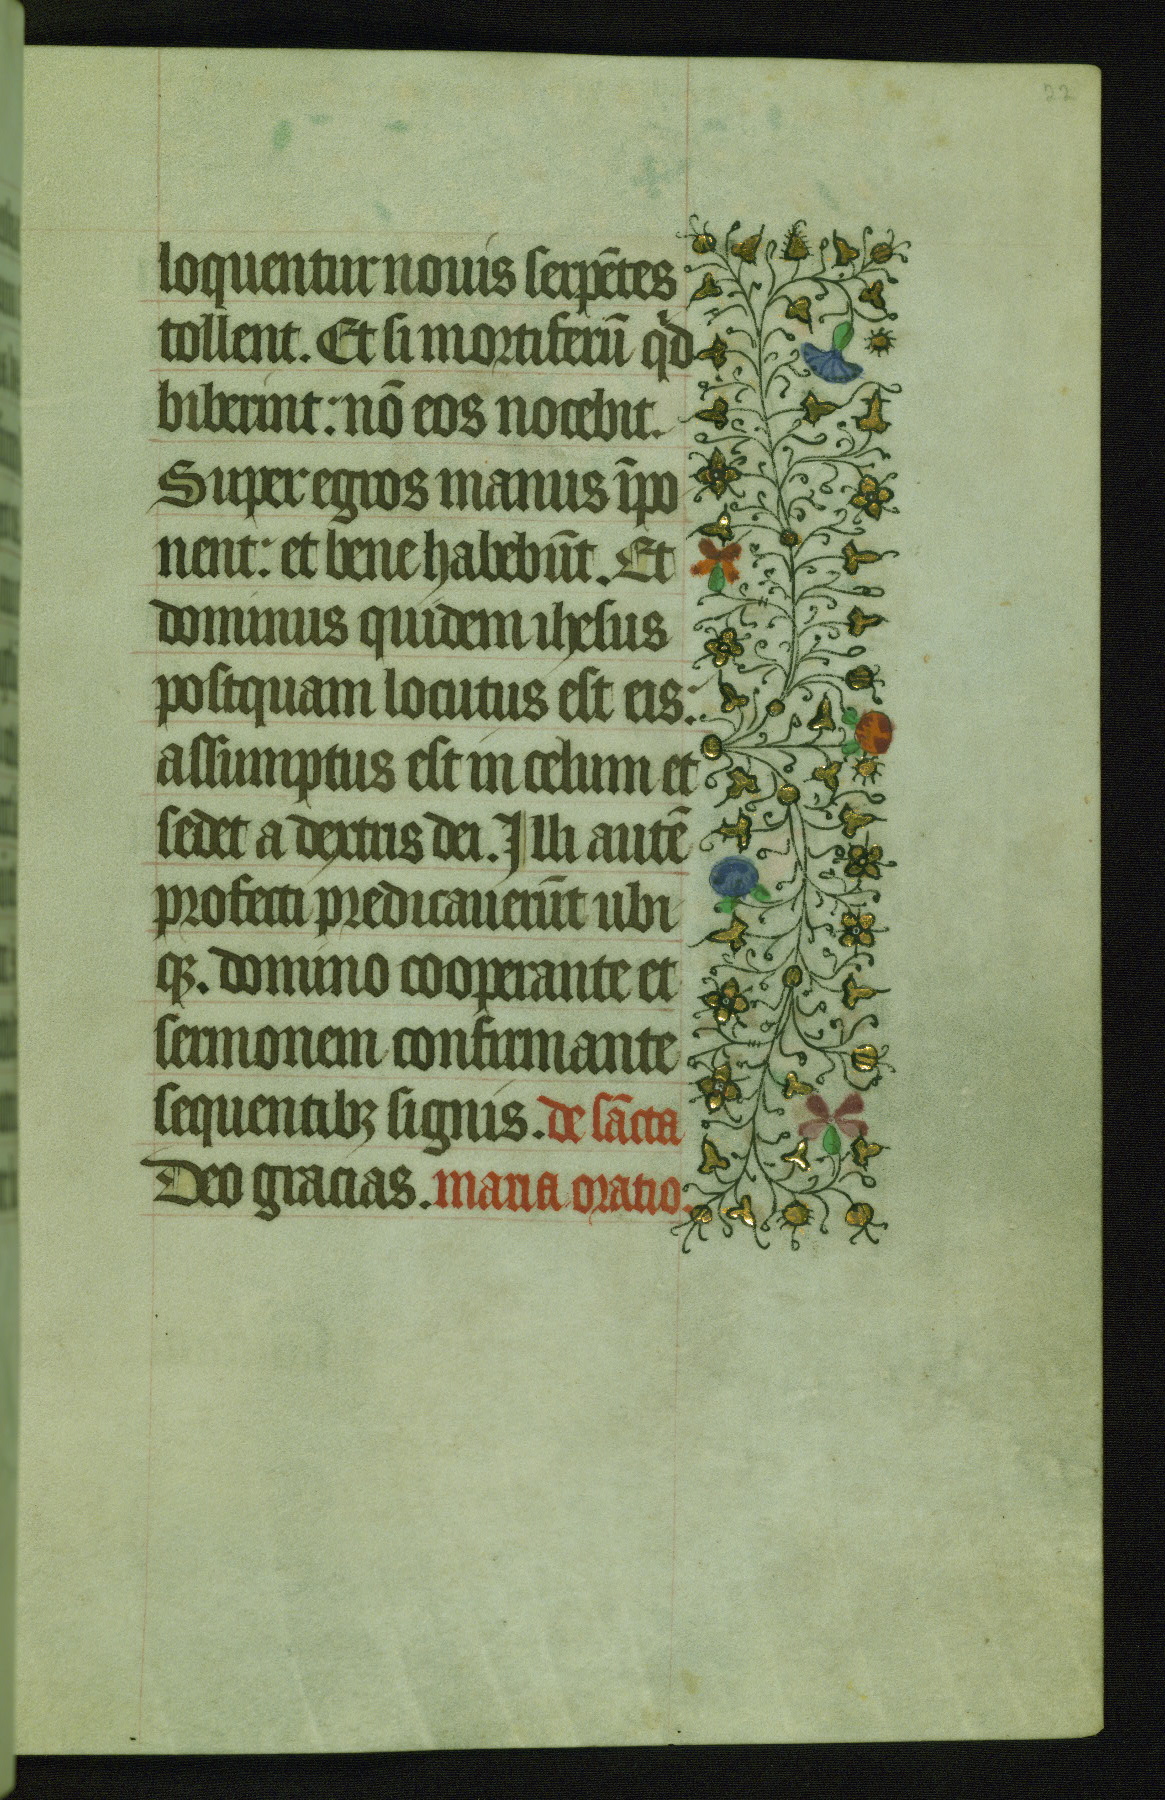 22
loquentur nouis serpētes
tollent. Et si mortiferū qd
biberint: nō eos nocebit.
Super egros manus īpo
nent: et bene habebūt. Et
dominus quidem ihesus
postquam locutus est eis:
assumptus est in celum et
sedet a dextris dei. Illi autē
profecti predicauerūt ubi
qꝫ. domino cooperante et
sermonem confirmante
sequentibꝫ signis. de sācta
Deo gracias. maria oratio.